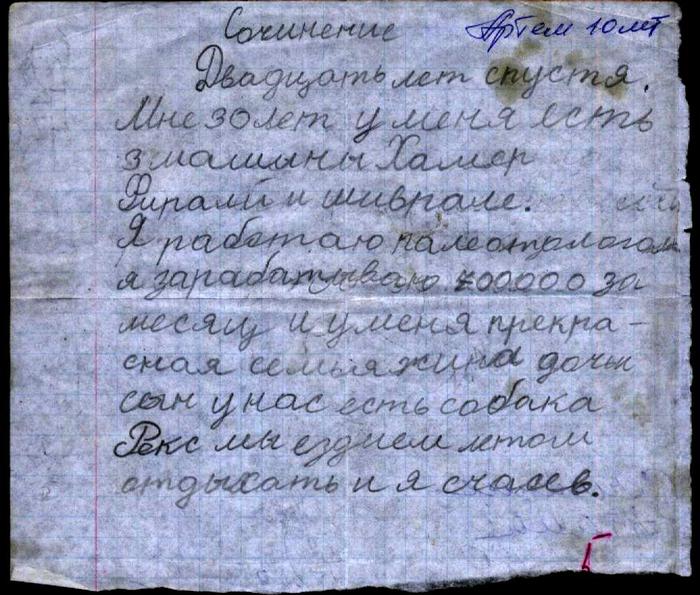 Сочинение Артем 10 лет
Двадцать лет спустя.
Мне 30 лет у меня есть
3 машыны Хамер
Фирали и шиврале.
Я работаю палеотологом
я зарабатываю 700000 за
месяц и у меня прекра-
сная семья жина дочь
сын у нас есть собака
Рекс мы ездием летом
отдыхать и я счасв.
5